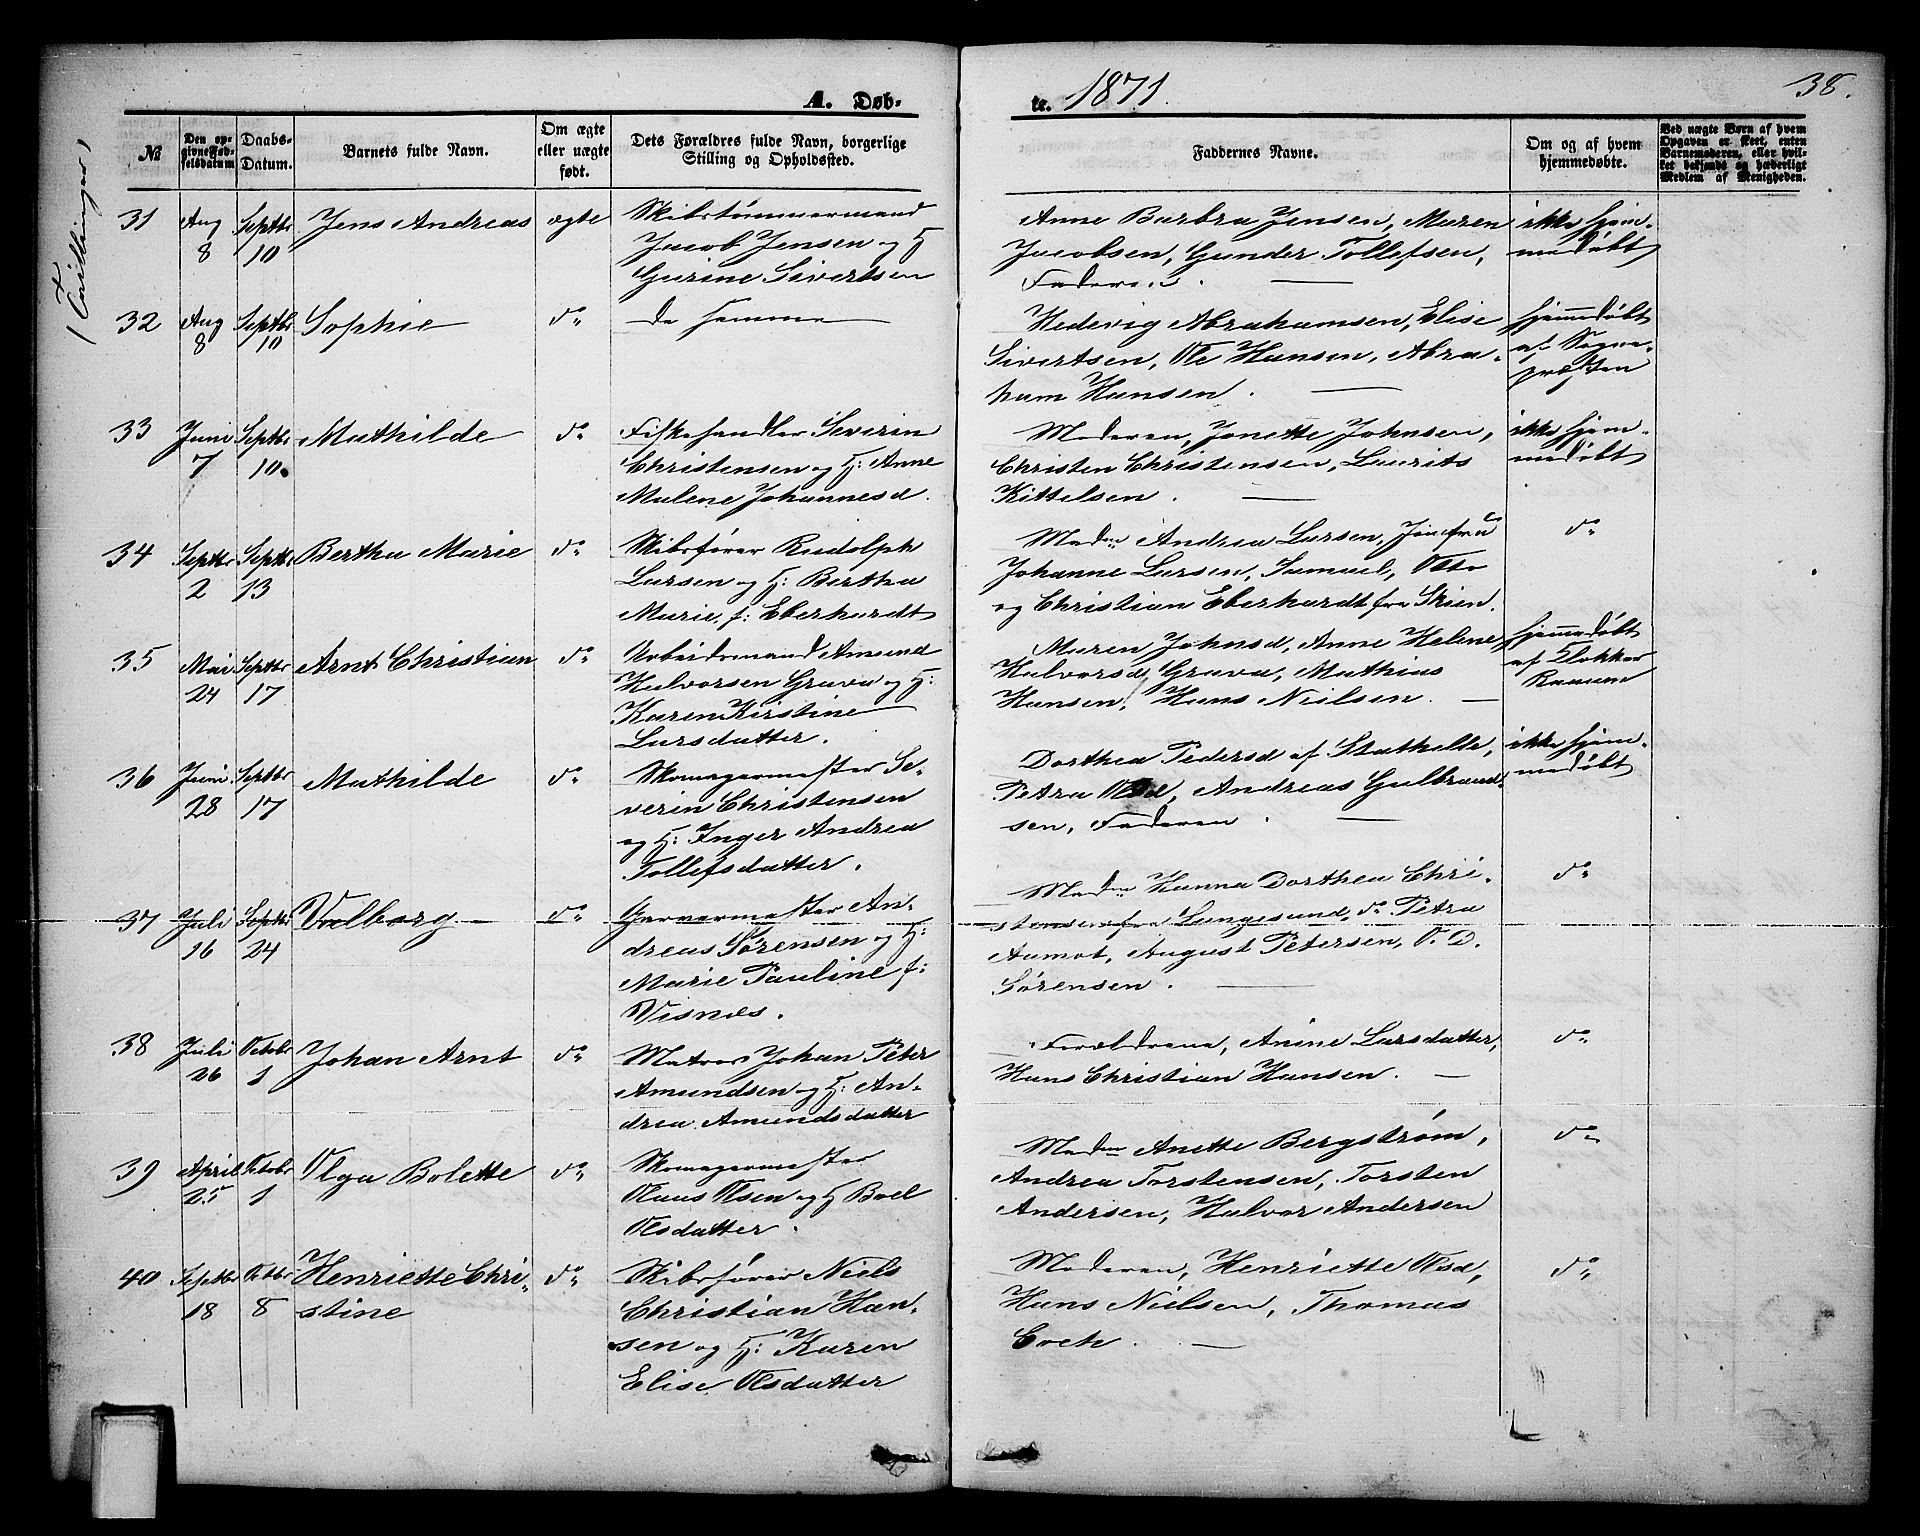 A. Døb-
te. 1871.
38.
№
Den op-
givne Fød-
selsdatum
Daabs-
Datum.
Barnets fulde Navn.
Om ægte
eller uægte
født.
Dets Forældres fulde Navn, borgerlige
Stilling og Opholdssted.
Faddernes Navne.
Om og af hvem
hjemmedøbte.
Ved uægte Børn af hvem
Opgaven er skeet, enten
Barnemoderen, eller hvil-
ket bekjendt og hæderligt
Medlem af Menigheden.
(Tvillinger)
31 Aug 8 Septbr 10 Jens Andreas ægte
Skibstømmermand
Jacob Jensen og H:
Gurine Sivertsen
Anne Barbra Jensen, Maren
Jacobsen, Gunder Tollefsen,
Faderen.
ikke hjem-
medøbt
32 Aug 8 Septbr 10 Sophie do
de samme
Hedevig Abrahamsen, Elise
Sivertsen, Ole Hansen, Abra-
ham Hansen.
hjemmedøbt
af Sogne-
præsten
33 Juni 7 Septbr 10. Mathilde do
Fiskehandler Severin
Christensen og H: Anne
Malene Johannesd.
Moderen, Jonette Johnsen,
Christen Christensen, Laurits
Kittelsen.
ikke hjem-
medøbt
34 Septbr 2 Septbr 13 Bertha Marie do
Skibsfører Rudolph
Larsen og H: Bertha
Marie f: Eberhardt
Madm Andrea Larsen, Jomfru
Johanne Larsen, Samuel, Otto
og Christian Eberhardt fra Skien.
do
35 Mai 24 Septbr 17 Arnt Christian do
Arbeidsmand Amund
Halvorsen Grava og H:
Karen Kirstine
Larsdatter.
Maren Johnsd, Anne Helene
Halvorsd, Grava, Mathias
Hansen, Hans Nielsen.
hjemmedøbt
af Klokker
Raaum
36 Juni 28 Septbr 17 Mathilde do
Skomagermester Se-
verin Christensen
og H: Inger Andrea
Tollefsdatter.
Dorthea Pedersd af Stathelle,
Petra Olsd, Andreas Gulbrand-
sen, Faderen.
ikke hjem-
medøbt
37 Juli 16 Septbr 24 Valborg do
Garvermester An-
dreas Sørensen og H:
Marie Pauline f:
Visnæs.
Madm Hanna Dorthea Chri-
stensen fra Langesund, do Petra
Aamot, August Petersen, O. D.
Sørensen.
do
38 Juli 26 Octobr 1 Johan Arnt do
Matros Johan Peter
Amundsen og H: An-
drea Amundsdatter
Forældrene, Anine Larsdatter,
Hans Christian Hansen.
do
39 April 25 Octobr 1 Olga Bolette do
Skomagermester
Claus Olsen og H Boel
Olsdatter.
Madm Anette Bergstrøm,
Andrea Torstensen, Torsten
Andersen, Halvor Andersen
do
40 Septbr 18 Octbr 8 Henriette Chri-
stine do
Skibsfører Niels
Christian Han-
sen og H: Karen
Elise Olsdatter
Moderen, Henriette Olsd,
Hans Nielsen, Thomas
do